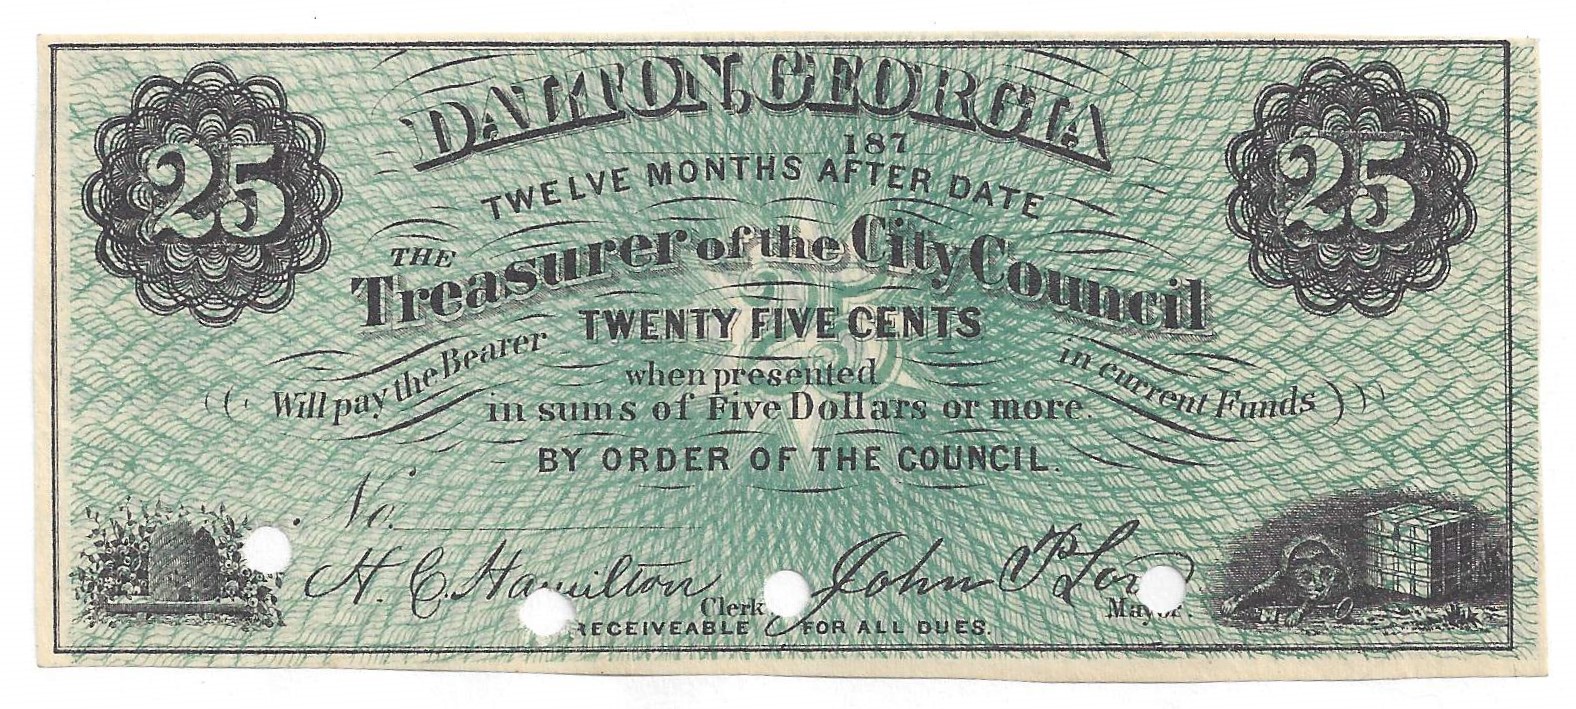 DALTON, GEORGIA
25
25
187
TWELVE MONTHS AFTER DATE
THE
Treasurer of the City Council
TWENTY FIVE CENTS
25
Will pay the Bearer
when presented
in current Funds
in sums of Five Dollars or more.
BY ORDER OF THE COUNCIL.
No.
H. C. Hamilton
John P
Clerk
Mayor
RECEIVEABLE FOR ALL DUES.